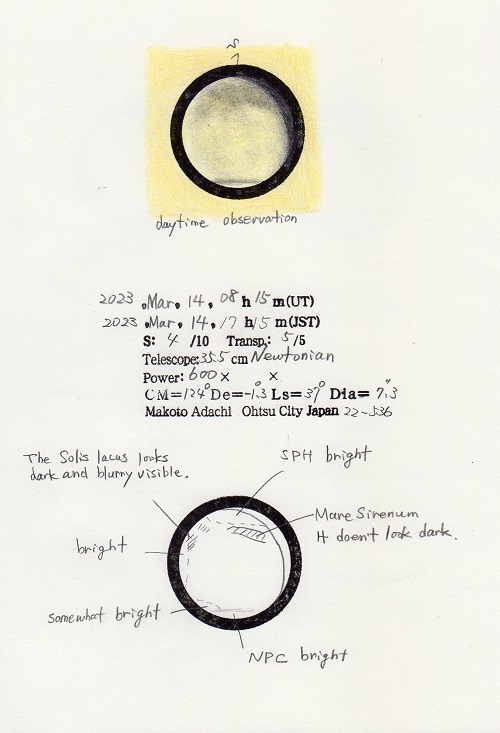 S
daytime observation
2023 Mar. 14, 08 h 15 m(UT)
2023 Mar. 14, 17 h 15 m(JST)
S: 4 /10 Transp.: 5/5
Telescope: 35.5 cm Newtonian
Power: 600× ×
CM=124° De=-1.3° Ls=37° Dia= 7.3"
Makoto Adachi Ohtsu City Japan 22-536
The Solis lacus looks
dark and blurry visible.
SPH bright
Mare Sirenum
It doen't look dark.
bright
somewhat bright
NPC bright